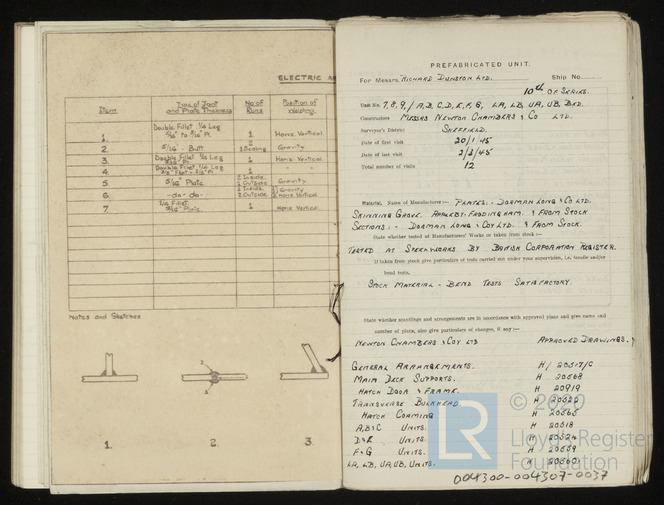 ELECTRIC
Item
Type of Joint and Plate Thickness
No of Runs
Position of Welding
1.
Double Fillet 1/4 Leg
5/16" to 7/16" Pl.
1
Horiz. Vertical
2.
5/16" - Butt.
1 Sealing
Gravity
3.
Double Fillet 3/16 Leg
1
Horiz. Vertical
4.
Double Fillet 1/4 Leg
1
"
"
5
5/16" Plate
2 Inside
1 Outside
Gravity
6.
-do- do-
1 Inside
2 Outside
Gravity
Horiz. Vertical
7
1/4 Fillet
5/16" Plate.
1
Horiz Vertical
Notes and Sketches
1.
2.
3
PREFABRICATED UNIT.
For Messrs. RICHARD DUNSTON LTD.
Ship No.
10th OF SERIES.
Unit No. 7, 8, 9, / A, B, C, D, E, F, G, LA, LB, UA, UB, BKD.
Constructors MESSRS NEWTON CHAMBERS & CO LTD.
Surveyor's District SHEFFIELD.
Date of first visit 20/1/45
Date of last visit 2/2/45
Total number of visits 12
Material. Name of Manufacturer :- PLATES:- DORMAN LONG & CO LTD.
SKINNING GROVE. APPLEBY-FRODINGHAM. & FROM STOCK
SECTIONS:- DORMAN LONG & COY LTD. & FROM STOCK.
State whether tested at Manufacturers' Works or taken from stock :-
TESTED AT STEELWORKS BY BRITISH CORPORATION REGISTER.
If taken from stock give particulars of tests carried out under your supervision, i.e. tensile and/or
bend tests.
STOCK MATERIAL - BEND TESTS SATISFACTORY.
State whether scantlings and arrangements are in accordance with approved plans and give name and
number of plans, also give particulars of changes, if any :-
NEWTON CHAMBERS & COY LTD APPROVED DRAWINGS.
GENERAL ARRANGEMENTS. H/ 20517/C
MAIN DECK SUPPORTS. H 20568
HATCH DOOR & FRAME. H 20919
TRANSVERSE BULKHEAD. H
HATCH COAMING H 20565
A, B & C UNITS. H 20518
D & E UNITS. H 20524
F & G UNITS. H 20559
LA, LB, UA, UB, UNITS. H 20560
LR
© 2020
Lloyd's Register
Foundation
004300-004307-0037